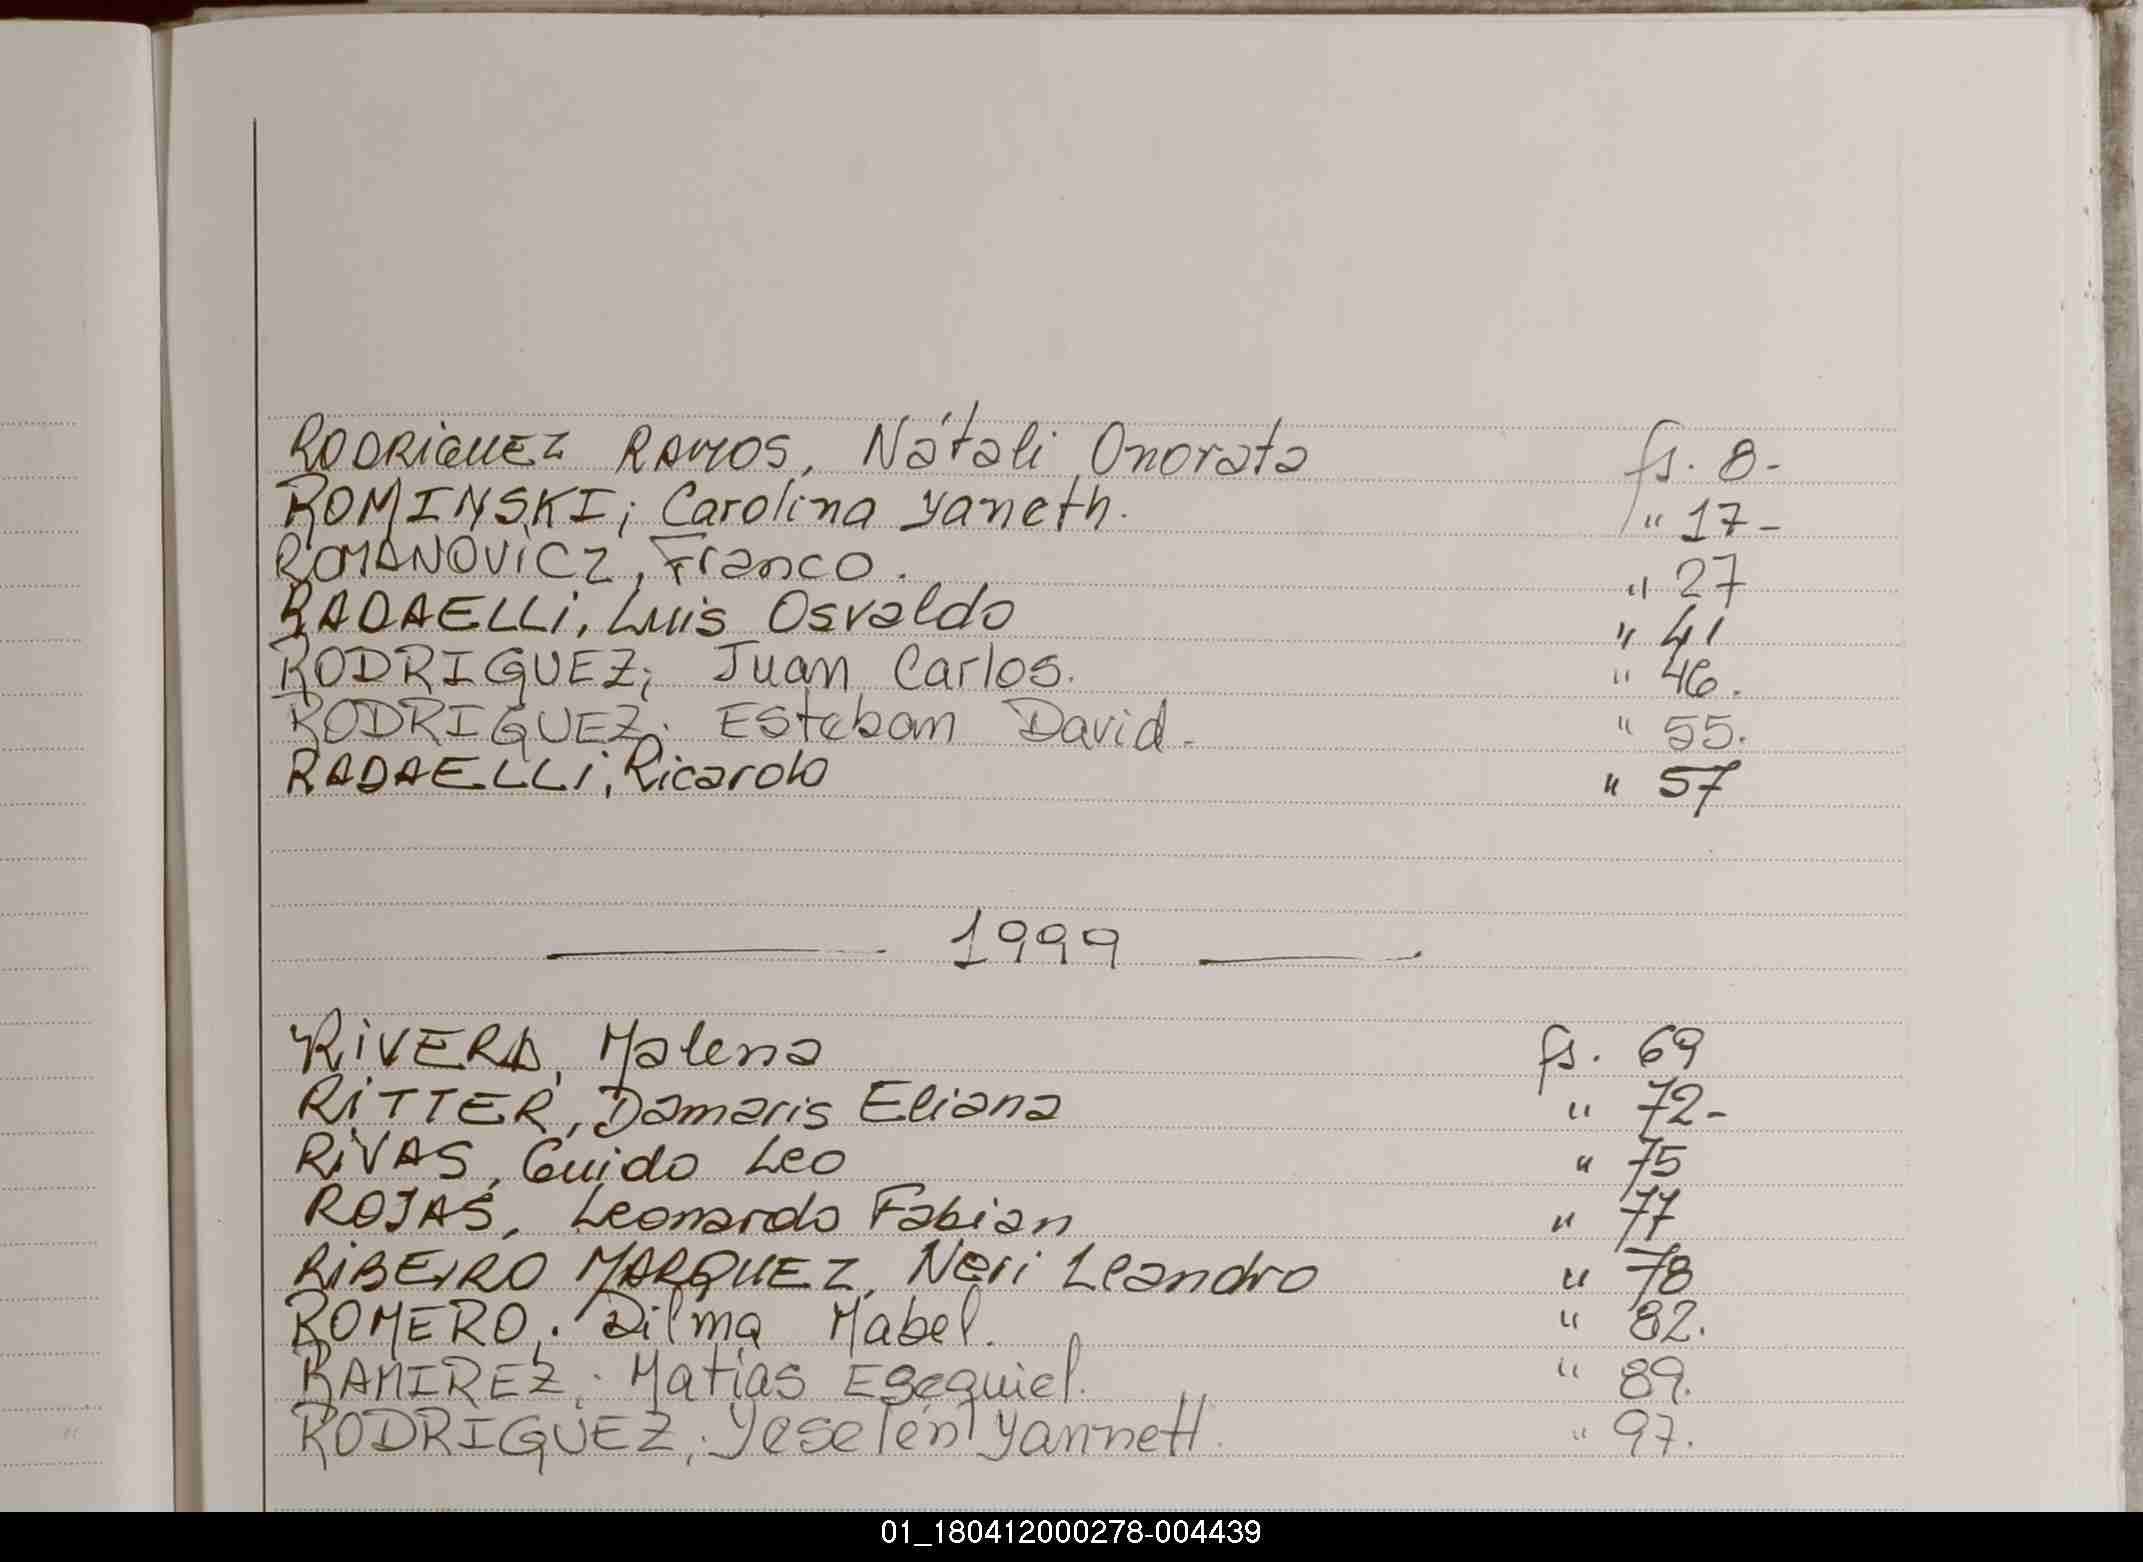 RODRIGUEZ RAMOS, Nátali Onorata fs. 8-
ROMINSKI; Carolina Yaneth. " 17-
ROMANOVICZ, Franco. " 27
RADAELLI, Luis Osvaldo " 41
RODRIGUEZ; Juan Carlos. " 46.
RODRIGUEZ; Esteban David. " 55.
RADAELLI, Ricardo " 57
1999
RIVERA, Malena fs. 69
RITTER, Damaris Eliana " 72-
RIVAS, Guido Leo " 75
ROJAS, Leonardo Fabian " 77
RIBEIRO MARQUEZ, Neri Leandro " 78
ROMERO, Dilma Mabel. " 82.
RAMIREZ; Matías Esequiel. " 89.
RODRIGUEZ; Yeselén Yannett. " 97.
01_180412000278-004439